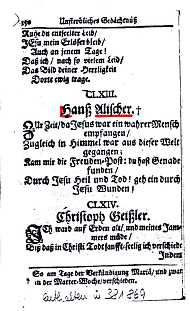 350 Unsterbliches Gedächtnüß
Ruhe du entseelter Leib/
JEsu mein Erlöser bleib/
Auch in jenem Tage!
Daß ich/ nach so vielem Leid/
Das Bild deiner Herrligkeit
Dorte ewig trage.
CLXIII.
Hanß Altscher. †
Alle Zeit/ da JEsus war ein wahrer Mensch
empfangen/
Zugleich in Himmel war aus dieser Welt
gegangen:
Kam mir die Freuden-Post: du hast Genade
funden/
Durch Jesu Heil und Tod! geh ein durch
Jesu Wunden!
CLXIV.
Christoph Geißler.
Ich ward auf Erden alt/ und meines Jammers
müde/
Biß daß in Christi Tod sanfft-selig ich verschiede
Indem
So am Tage der Verkündigung Mariä/ und zwar
in der Marter-Woche verschieden.